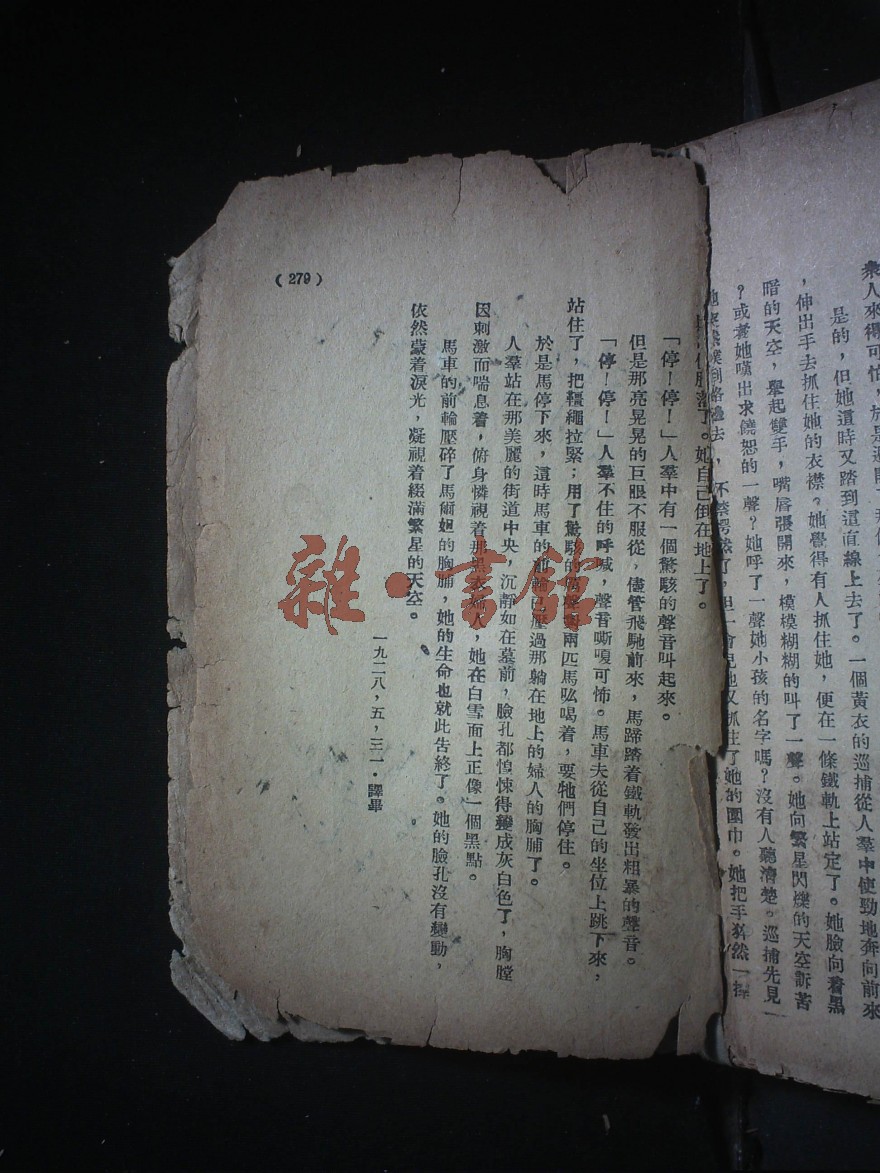 衆人來得可怕，於是避開了那個
是的，但她這時又踏到這直線上去了。一個黃衣的巡捕從人羣中使勁地奔向前來
，伸出手去抓住她的衣襟。她覺得有人抓住她，便在一條鐵軌上站定了。她臉向着黑
暗的天空，舉起雙手，嘴唇張開來，模模糊糊的叫了一聲。她向繁星閃爍的天空訴苦
？或者她嘆出求饒恕的一聲？她呼了一聲她小孩的名字嗎？沒有人聽清楚。巡捕先見
，不禁愕然了，但一會兒他又抓住了她的圍巾。她把手猝然一揮
了。她自己倒在地上了。
「停！停！」人羣中有一個驚駭的聲音叫起來。
但是那亮晃晃的巨眼不服從，儘管飛馳前來，馬蹄踏着鐵軌發出粗暴的聲音。
「停！停！」人羣不住的呼喊，聲音嘶嗄可怖。馬車夫從自己的坐位上跳下來，
站住了，把韁繩拉緊；用了驚駭的聲對兩匹馬吆喝着，要牠們停住。
於是馬停下來，這時馬車的前輪已壓過那躺在地上的婦人的胸脯了。
人羣站在那美麗的街道中央，沉靜如在墓前，臉孔都惶悚得變成灰白色了，胸膛
因刺激而喘息着，俯身憐視着那黑衣婦人，她在白雪面上正像一個黑點。
馬車的前輪壓碎了馬爾妲的胸脯，她的生命也就此告終了。她的臉孔沒有變動，
依然蒙着淚光，凝視着綴滿繁星的天空。
一九二八，五，三一·譯畢。
（279）
雜·書館